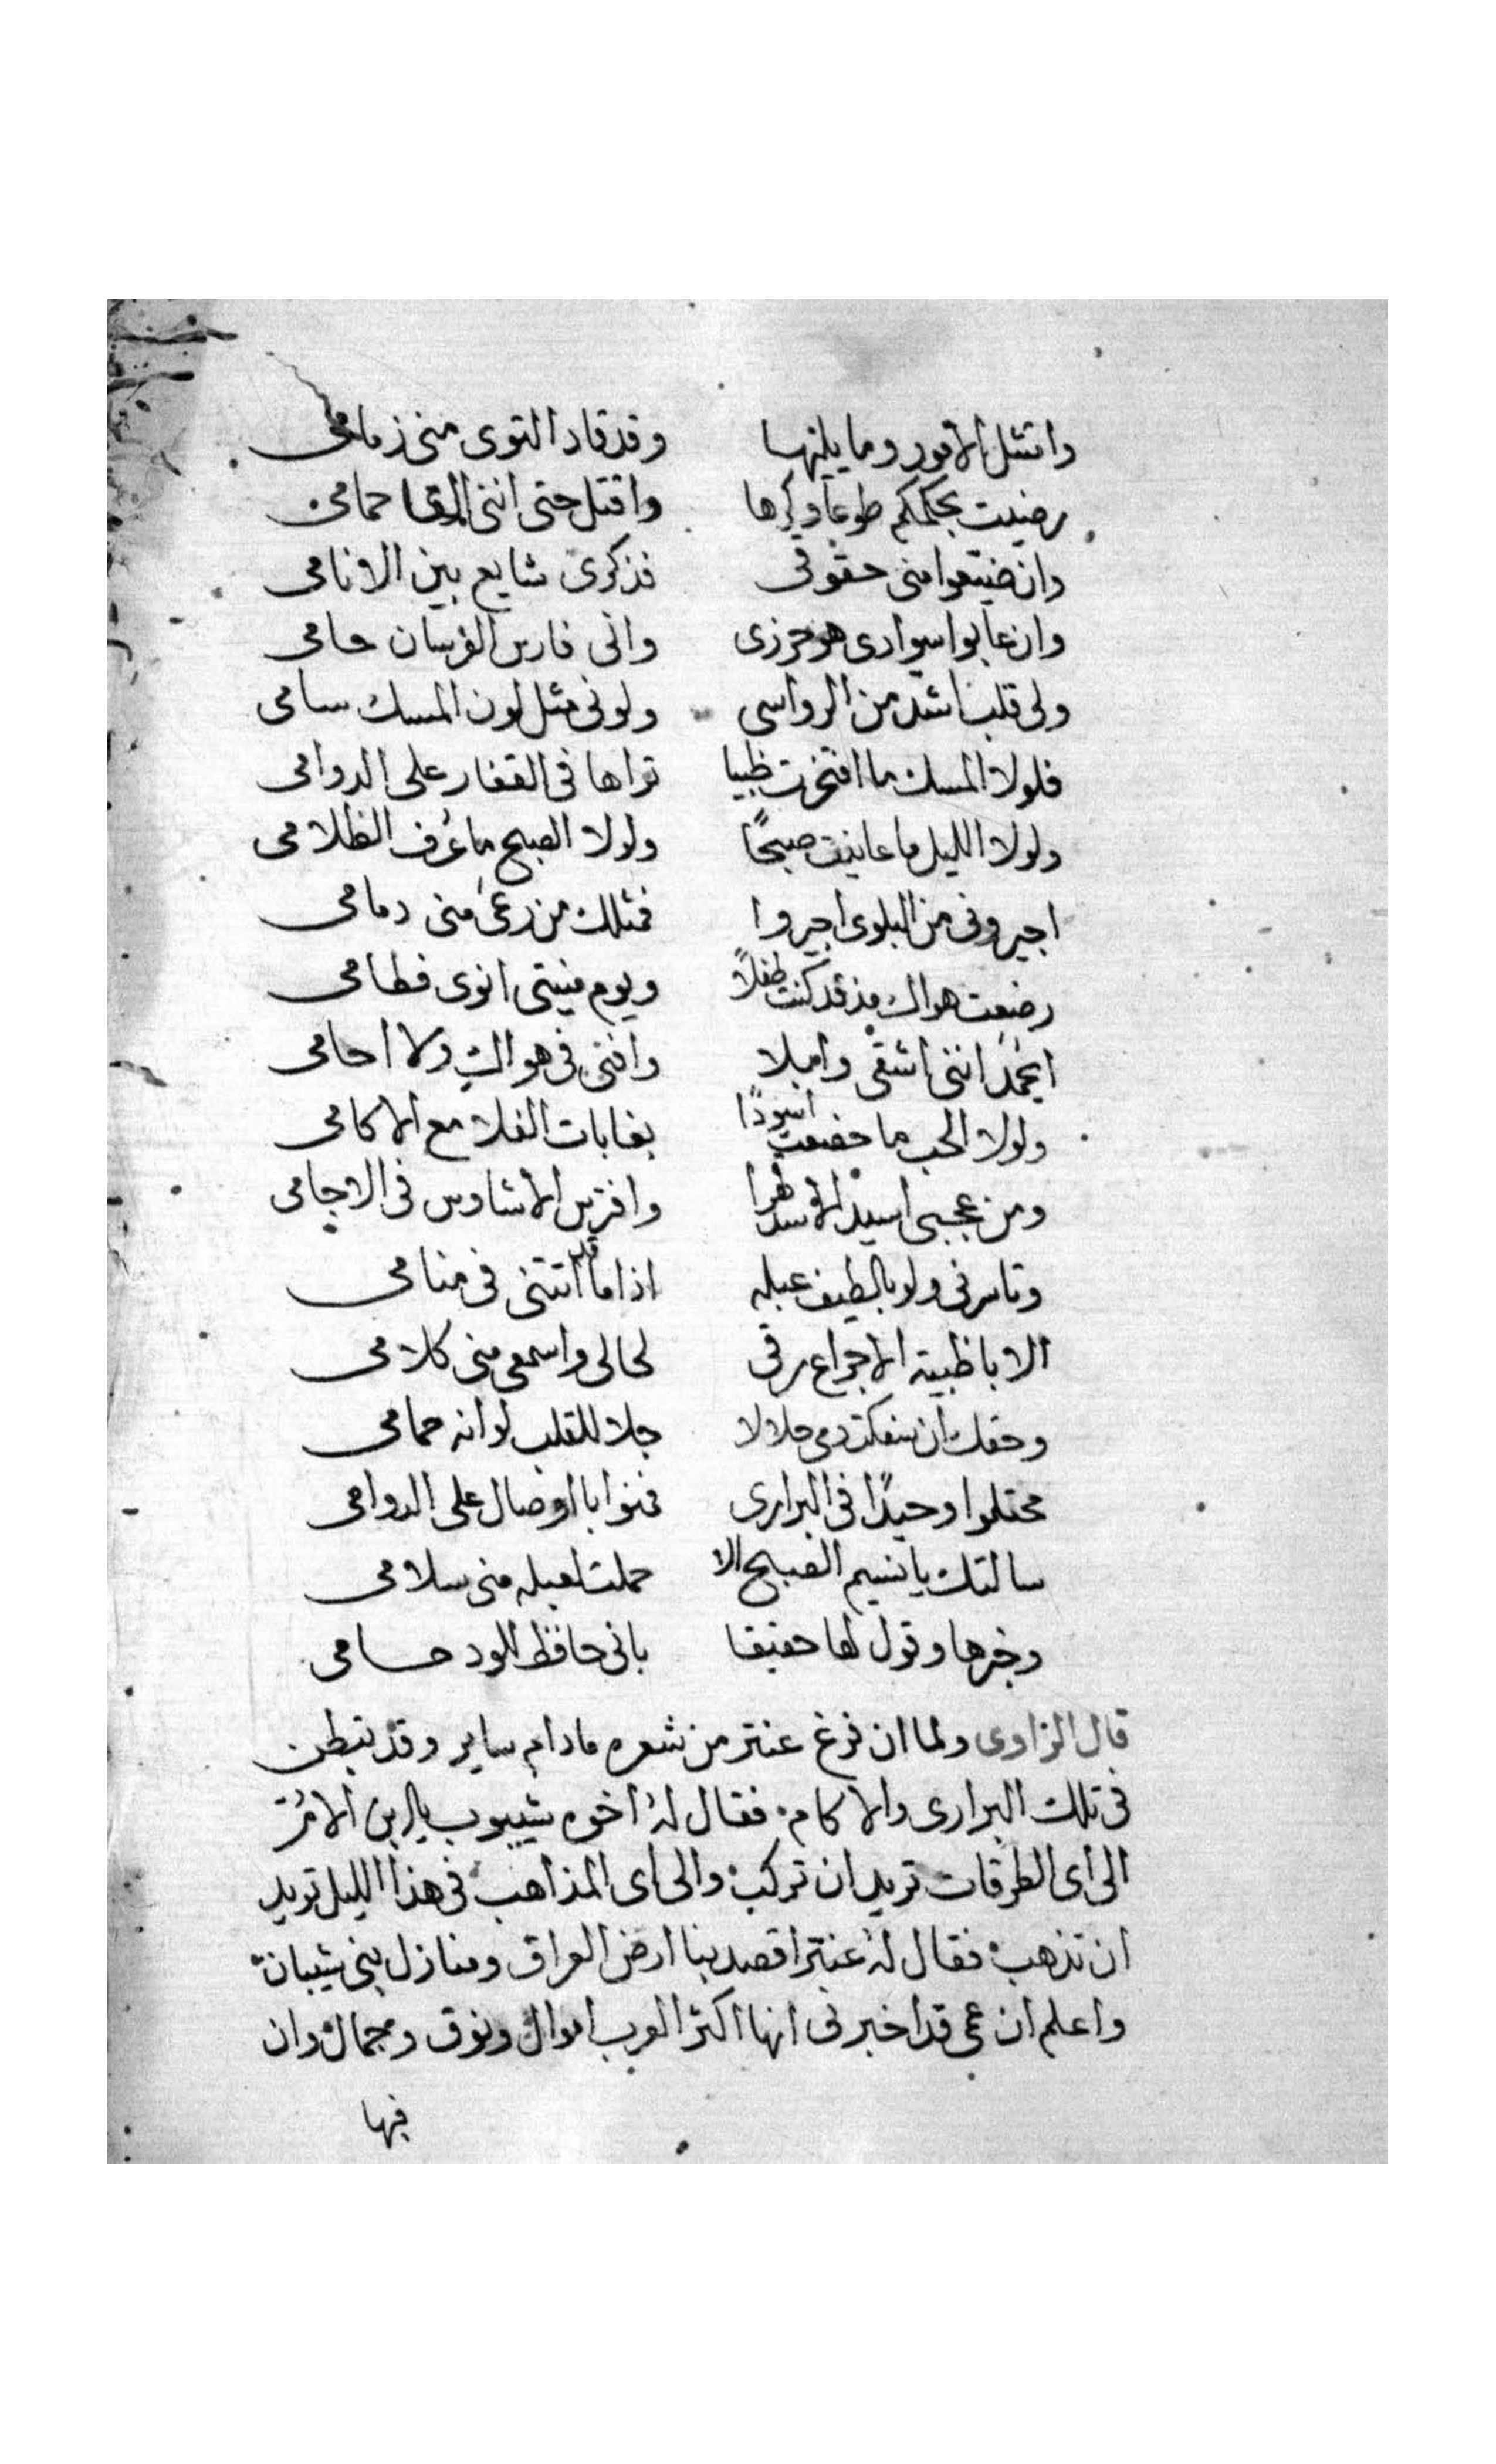 وامتثل الامور وما يليها وقد قاد النوى منى زمامى
رضيت بحكمكم طوعا وكرها واقتل حتى اننى القا حمامى
وان ضيعوا منى حقوقى فذكرى شايع بين الانامى
وان عابوا سوادى هو حرزى وانى فارس الفرسان حامى
ولى قلب اشد من الرواسى ولونى مثل لون المسك سامى
فلولا المسك ما افتخرت ظبيا تراها فى القفار على الدوامى
ولولا الليل ما عاينت صبحًا ولولا الصبح ما عُرف الظلامى
اجيرونى من البلوى اجيروا فمثلك من رعى منى دمامى
رضعت هواك مذ قد كنت طفلًا ويوم منيتى انوى فطامى
اننى اشقى وابلا وافنى فى هواك ولا احامى
ولولا الحب ما خضعت اسودًا بغابات الفلا مع الاكامى
ومن عجبى اسيد الاسد قهرا وافترس الاشاوس فى الاجامى
وتاسرنى ولو بالطيف عبله اذا ما قد اتتنى فى منامى
الا يا ظبية الاجراع رقى لحالى واسمعى منى كلامى
وحقك ان سفكتى دمى حلالا حلا للقلب لو انه حمامى
وحيدًا فى البرارى فمنوا بالوصال على الدوامى
سالتك يا نسيم الصبح الا حملت لعبله منى سلامى
وخبرها وقول لها حقيقا بانى حافظ للود حسامى
قال الراوى ولما ان فرغ عنتر من شعره مادام ساير وقد تبطن
فى تلك البرارى والاكام فقال لهُ اخوه شيبوب يا ابن الام
الى اى الطرقات تريد ان تركب والى اى المذاهب فى هذا الليل تريد
ان تذهب فقال لهُ عنتر اقصد بنا ارض العراق ومنازل بنى شيبان
واعلم ان عمى قد اخبرنى انها اكثر العرب اموال ونوق وجمال وان
فيها